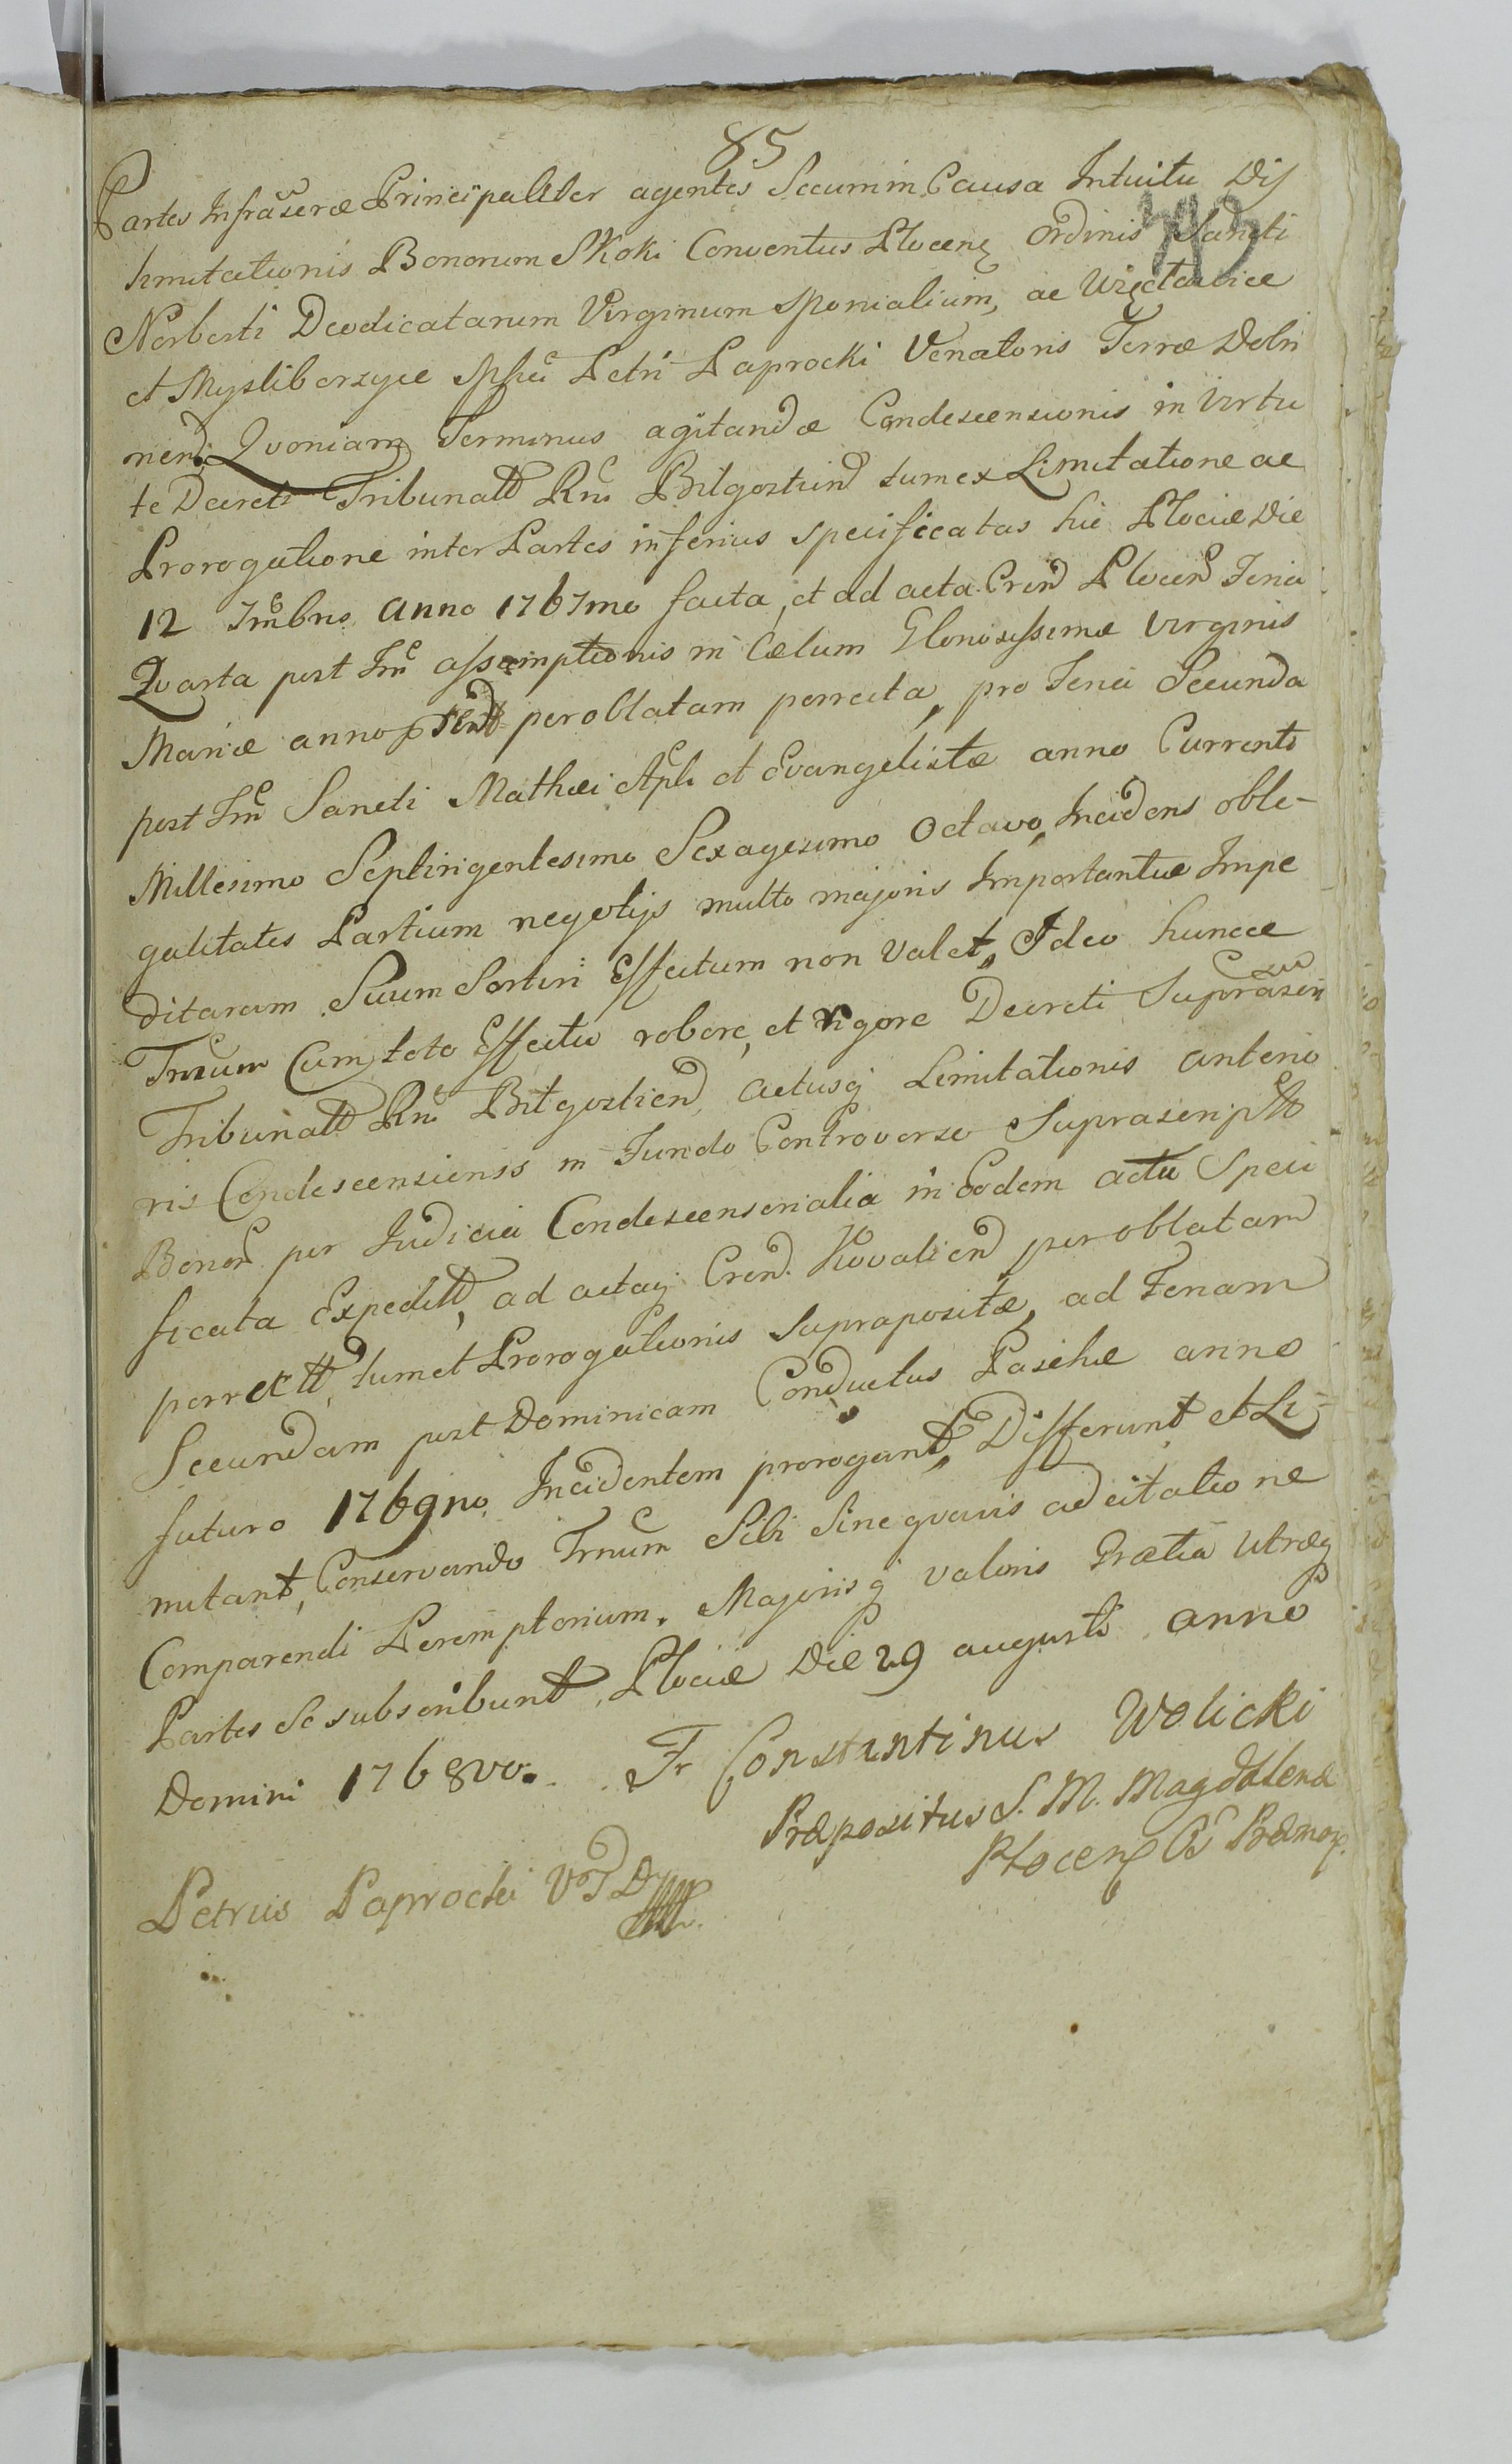 85
Partes Infrascræ Principaliter agentes Secum in Causa Intuitu Dis
limitationis Bonorum Skoki Conventus Plocens Ordinis Sancti
Norberti Deodicatarum Virginum Monialium, ac Więctawice
et Mysliborzyce Mfici Petri Paprocki Venatoris Terræ Dobri
nen: Qvoniam Terminus agitandæ Condescensionis in virtu
te Decreti Tribunalt Rni Bitgostien tum ex Limitatione ac
Prorogatione inter Partes inferius specificatas hic Plociæ Die
12 Xmbris Anno 1767mo facta, et ad acta Cren Plocen Feria
Qvarta post Fm assumptionis in Cælum Gloriosissimæ Virginis
Mariæ anno psen per oblatam porrecta, pro Feria Secunda
post Fm Sancti Mathæi Apli et Evangelistæ anno Currenti
Millesimo Septingentesimo Sexagesimo Octavo, Incidens oble-
galitates Partium negotijs multo majoris Importantiæ Impe
ditarum Suum Sortiri Effectum non Valet, Ideo huncce
Trnum Cum toto Effectu robore, et vigore Decreti Suprascri
Tribunalt Rni Bitgostien, actusq Limitationis anterio
ris Condescensionis in Fundo Controverso Suprascriptt
Bonor per Judicia Condescensorialia in Eodem actu Speci
ficata Expeditt, ad actaq Cren. Kovalien per oblatam
porrectt, tum et Prorogationis Supraposite, ad Feriam
Secundam post Dominicam Conductus Paschæ anno
futuro 1769no Incidentem prorogant, Differunt et Li-
mitant, Conservando Trnum Sibi Sine qvavis adcitatione
Comparendi Peremptorium. Majorisq valoris Gratia Utræq
Partes Se subscribunt. Plociæ Die 29 augusti anno
Domini 1768vo.
Fr Constantinus Wolicki
Præpositus S. M. Magdalenæ
Plocens Præmons.
Petrus Paprocki V T D mp